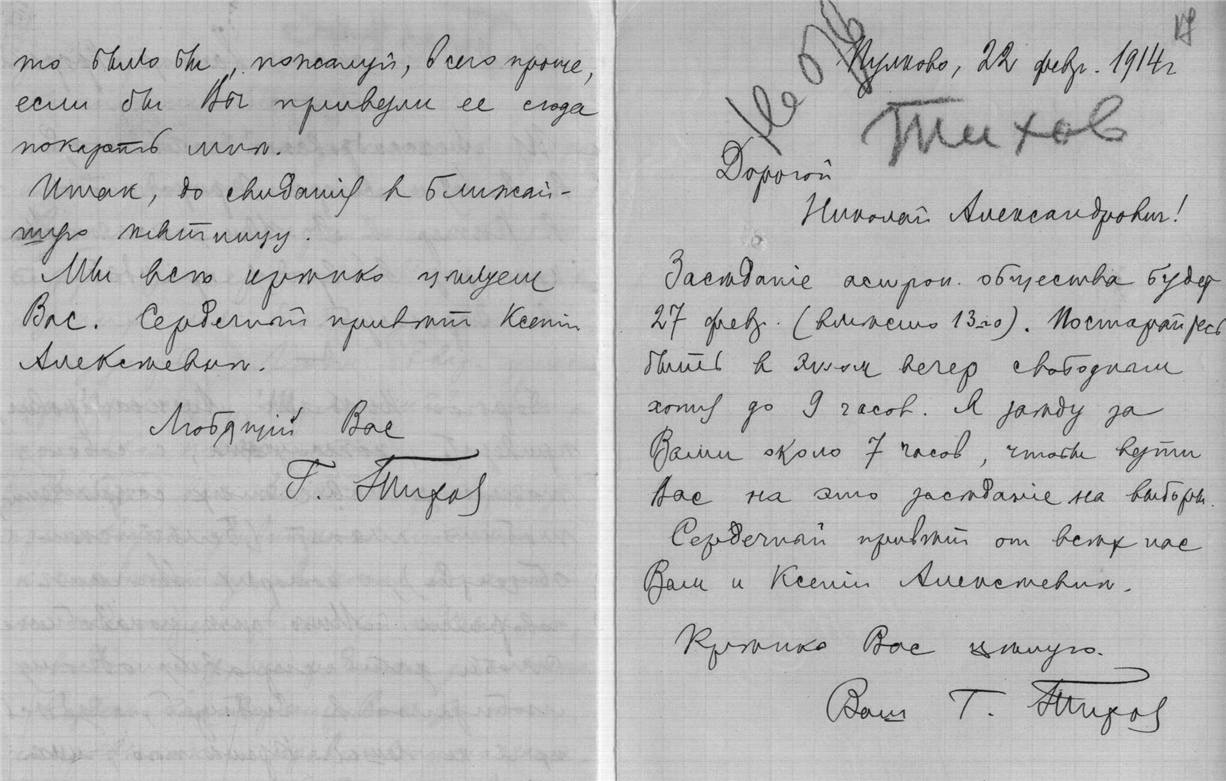 то было бы, пожалуй, всего проще,
если бы Вы привели ее сюда
показать мнѣ.
Итак, до свиданія в ближай-
шую пятницу.
Мы всѣ крѣпко цѣлуем
Вас. Сердечный привѣт Ксеніи
Алексѣевнѣ.
Любящій Вас
Г. Тихов
Пулково, 22 февр. 1914 г
Тихов
Дорогой
Николай Александрович!
Засѣданіе астрон. общества будет
27 февр. (вмѣсто 13го). Постарайтесь
быть в этот вечер свободным
хотя до 9 часов. Я заѣду за
Вами около 7 часов, чтобы везти
Вас на это засѣданіе на выборы.
Сердечный привѣт от всѣх нас
Вам и Ксеніи Алексѣевнѣ.
Крѣпко Вас цѣлую.
Ваш Г. Тихов